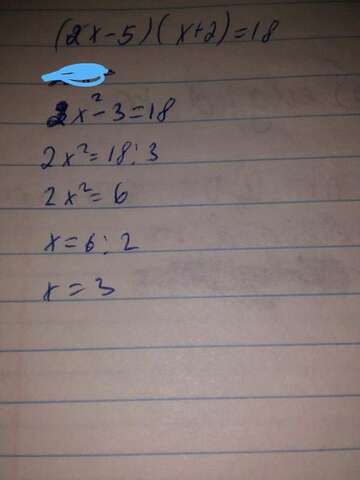 (2x-5)(x+2)=18
2x²-3=18
2x²=18:3
2x²=6
x=6:2
x=3